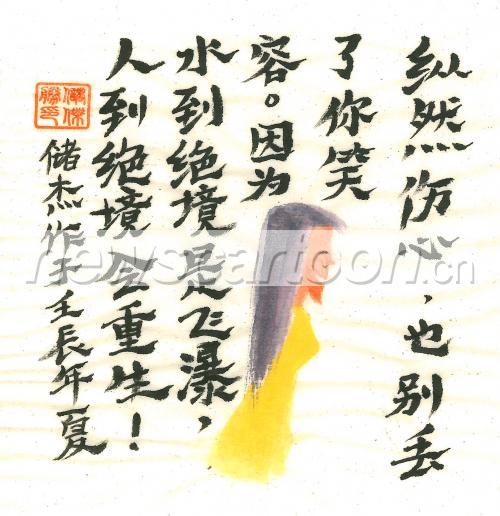 纵然伤心，也别丢
了你笑
容。因为
水到绝境是飞瀑，
人到绝境会重生！
储杰作于壬辰年夏
newscartoon.cn